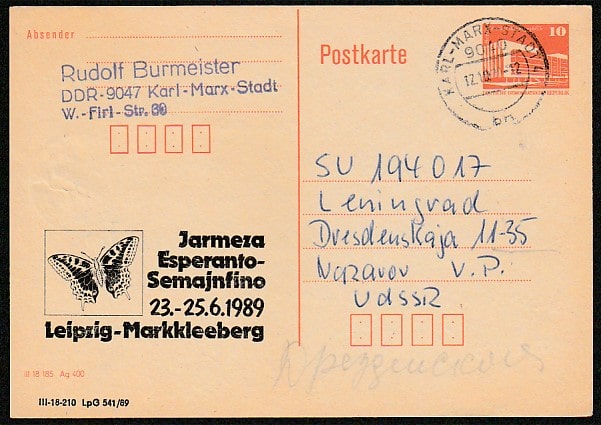 Absender
Rudolf Burmeister
DDR-9047 Karl-Marx-Stadt
W.-Firl-Str. 60
Jarmeza
Esperanto-
Semajnfino
23.-25.6.1989
Leipzig-Markkleeberg
III 18 185 Ag 400
III-18-210 LpG 541/89
Postkarte
KARL-MARX-STADT
10
SU 194017
Leningrad
Dresdenskaja 11-35
Nazarov V.P.
UdSSR